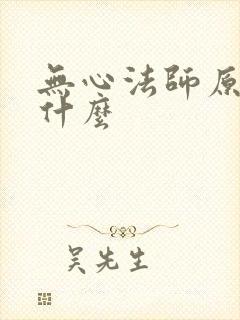 無心法師原
什麼
吳先生